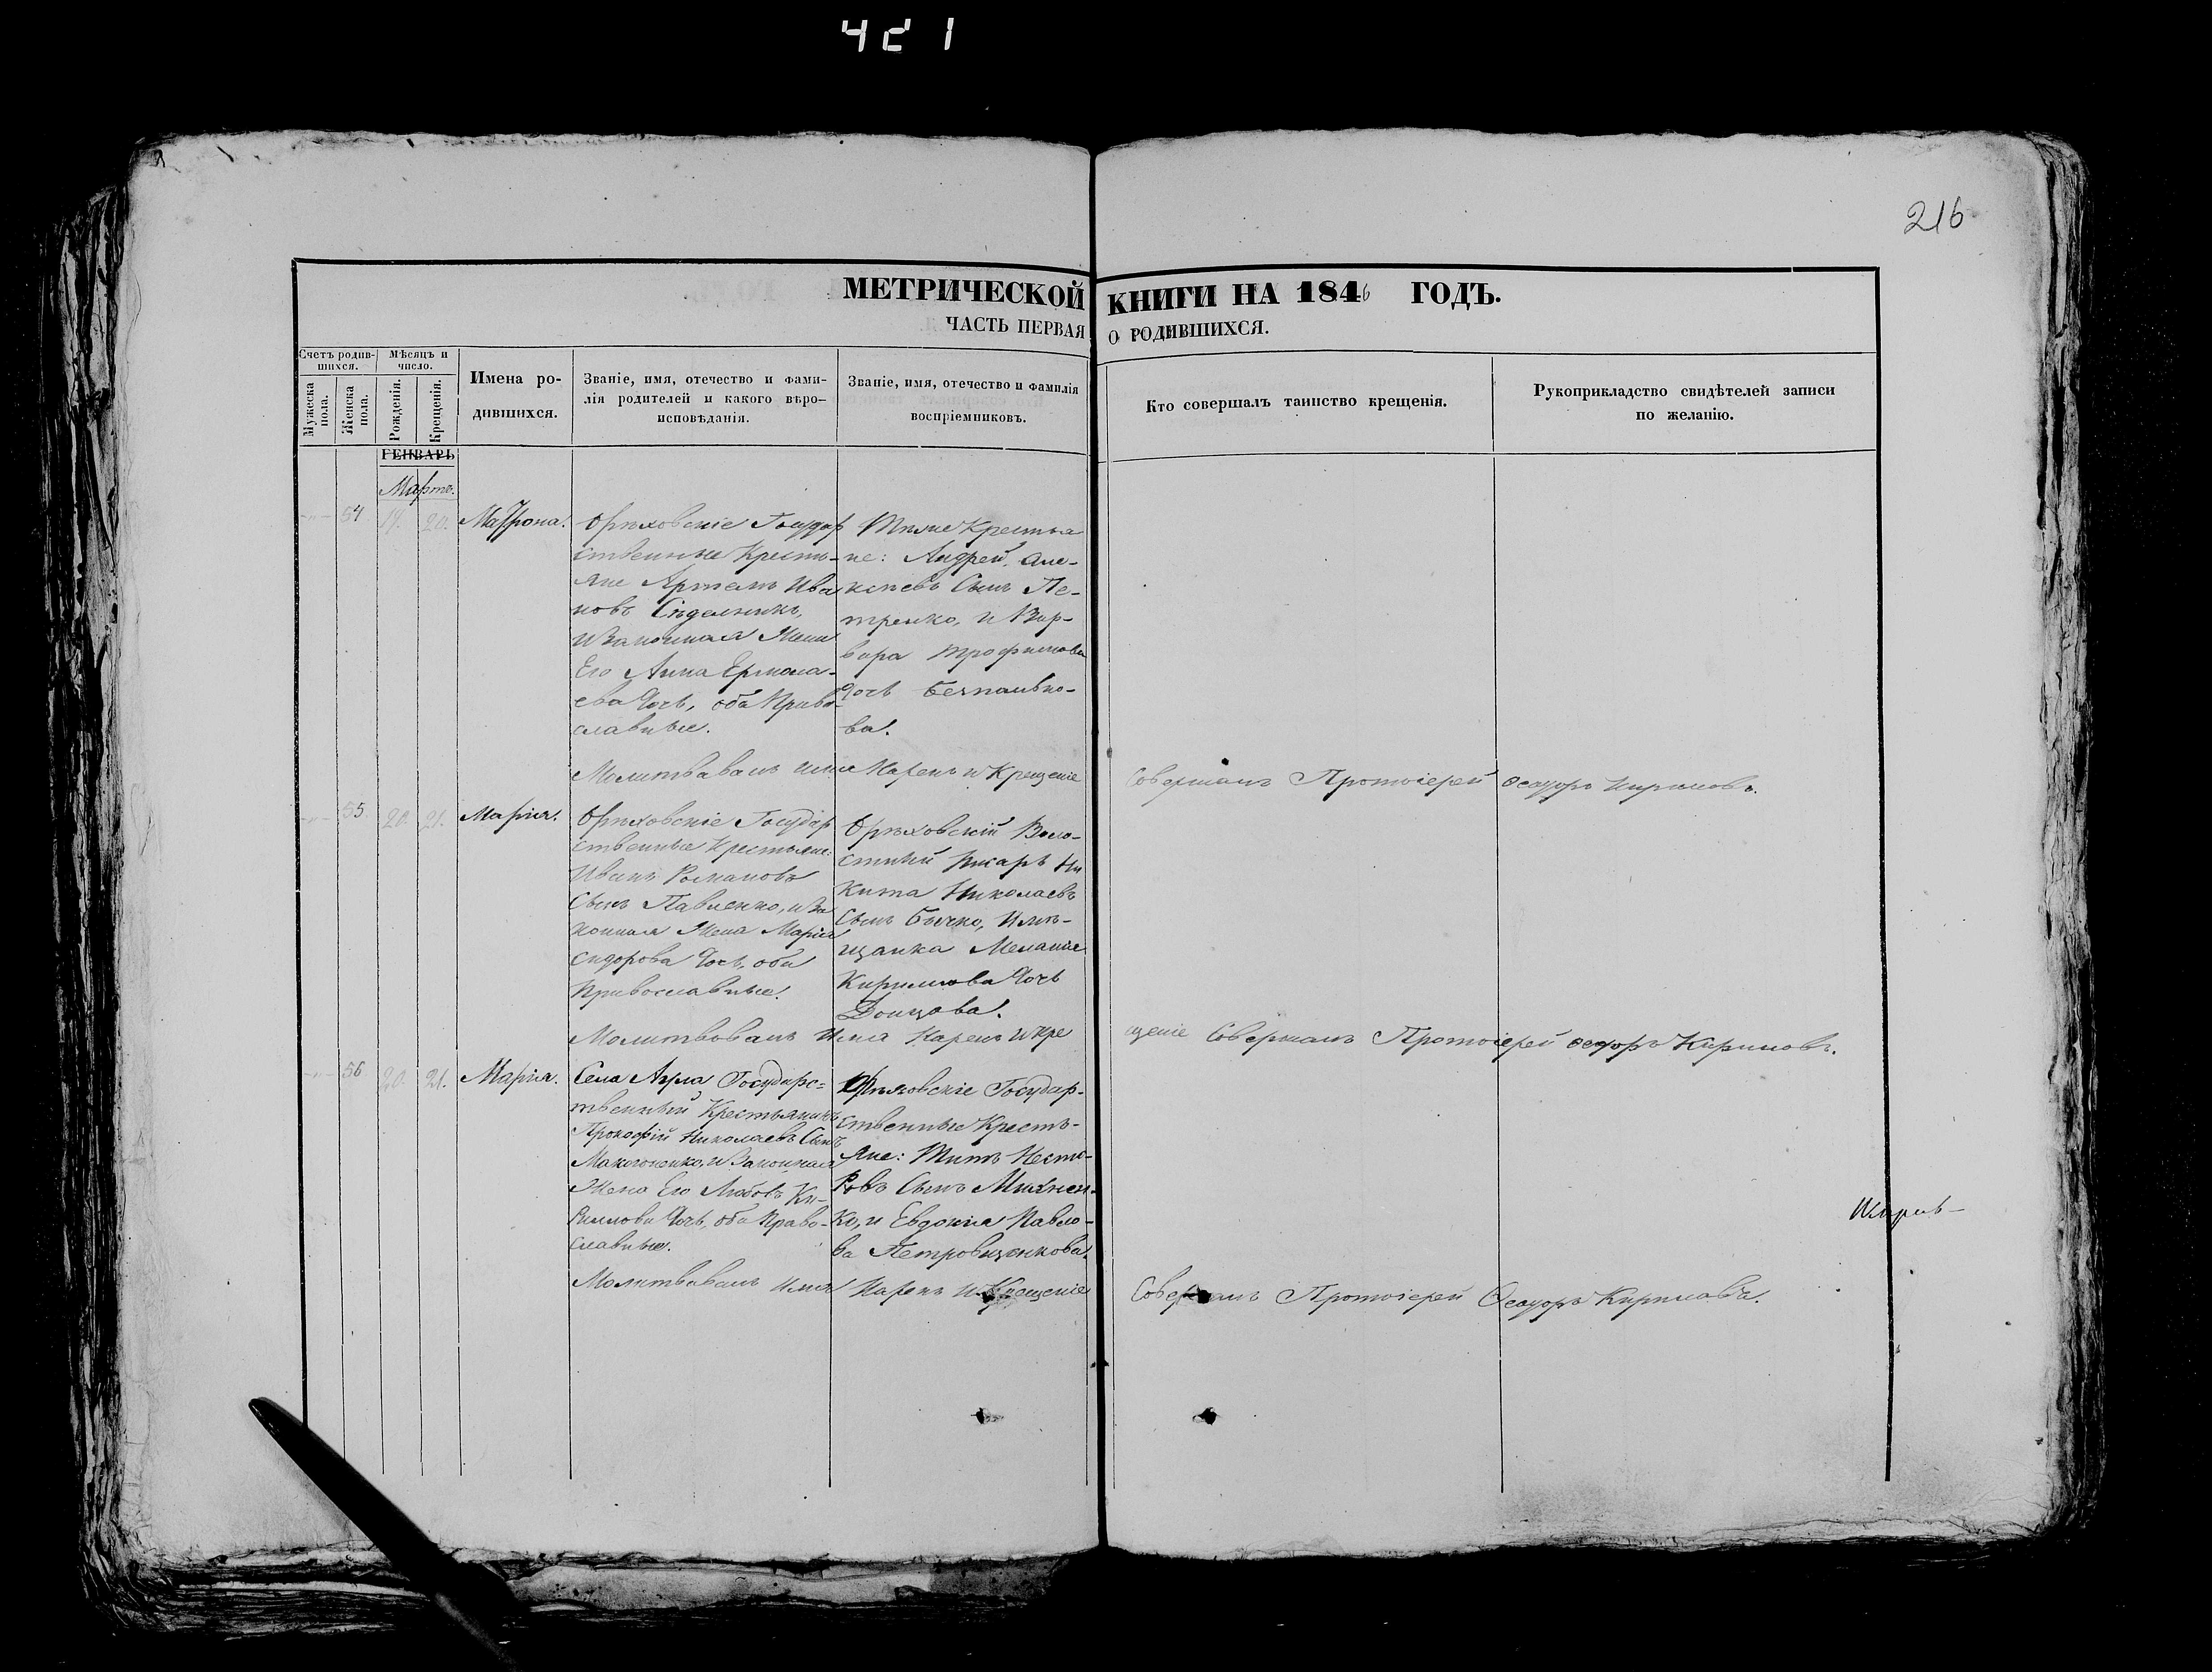 421
216
МЕТРИЧЕСКОЙ КНИГИ НА 1846 ГОДЪ.
ЧАСТЬ ПЕРВАЯ О РОДИВШИХСЯ.
Счетъ родившихся.
Мужеска пола.
Женска пола.
Мѣсяцъ и число.
Рожденія.
Крещенія.
Имена родившихся.
Званіе, имя, отечество и фами-
лія родителей и какого вѣро-
исповѣданія.
Званіе, имя, отечество и фамилія
воспріемниковъ.
Кто совершалъ таинство крещенія.
Рукоприкладство свидѣтелей записи
по желанію.
ГЕНВАРЬ
Мартъ.
54 17. 20. Матрона.
Орѣховскіе Государ
ственные Кресть-
яне Артемъ Ива
новъ Сѣдельникъ,
и Законная Жена
Его Анна Ермола-
ева Дочь, оба Право-
славные.
Тѣже Крестья
не: Андрей Але-
ксѣевъ Сынъ Пе-
тренко, и Вар-
вара Трофимова
Дочь
ва.
Молитвовалъ имя Нарекъ и Крещеніе Совершалъ Протоіерей Ѳеодоръ Кириловъ.
55. 20. 21. Марія.
Орѣховскіе Государ
ственные Крестьяне:
Иванъ Романовъ
Сынъ Павленко, и За
конная Жена Марія
Сидорова Дочь, оба
Православные.
Орѣховскій Воло-
стный Писарь Ни
кита Николаевъ
Сынъ Бычко, и мѣ-
щанка Меланія
Кирилова Дочь
Донцова.
Молитвовалъ Имя Нарекъ и Кре щеніе Совершалъ Протоіерей Ѳеодоръ Кириловъ.
56. 20. 21. Марія.
Села Аула Государс=
твенный Крестьянинъ
Прокофій Николаевъ Сынъ
Макогоненко, и Законная
Жена Его Любовь Ки-
рилова Дочь, оба Право-
славные.
Орѣховскіе Государ-
ственные Кресть-
яне: Титъ Несто-
ровъ Сынъ Михнен-
ко, и Евдокія Павло-
ва Петровиценкова.
Молитвовалъ имя Нарекъ и Крещеніе Совершалъ Протоіерей Ѳеодоръ Кириловъ.